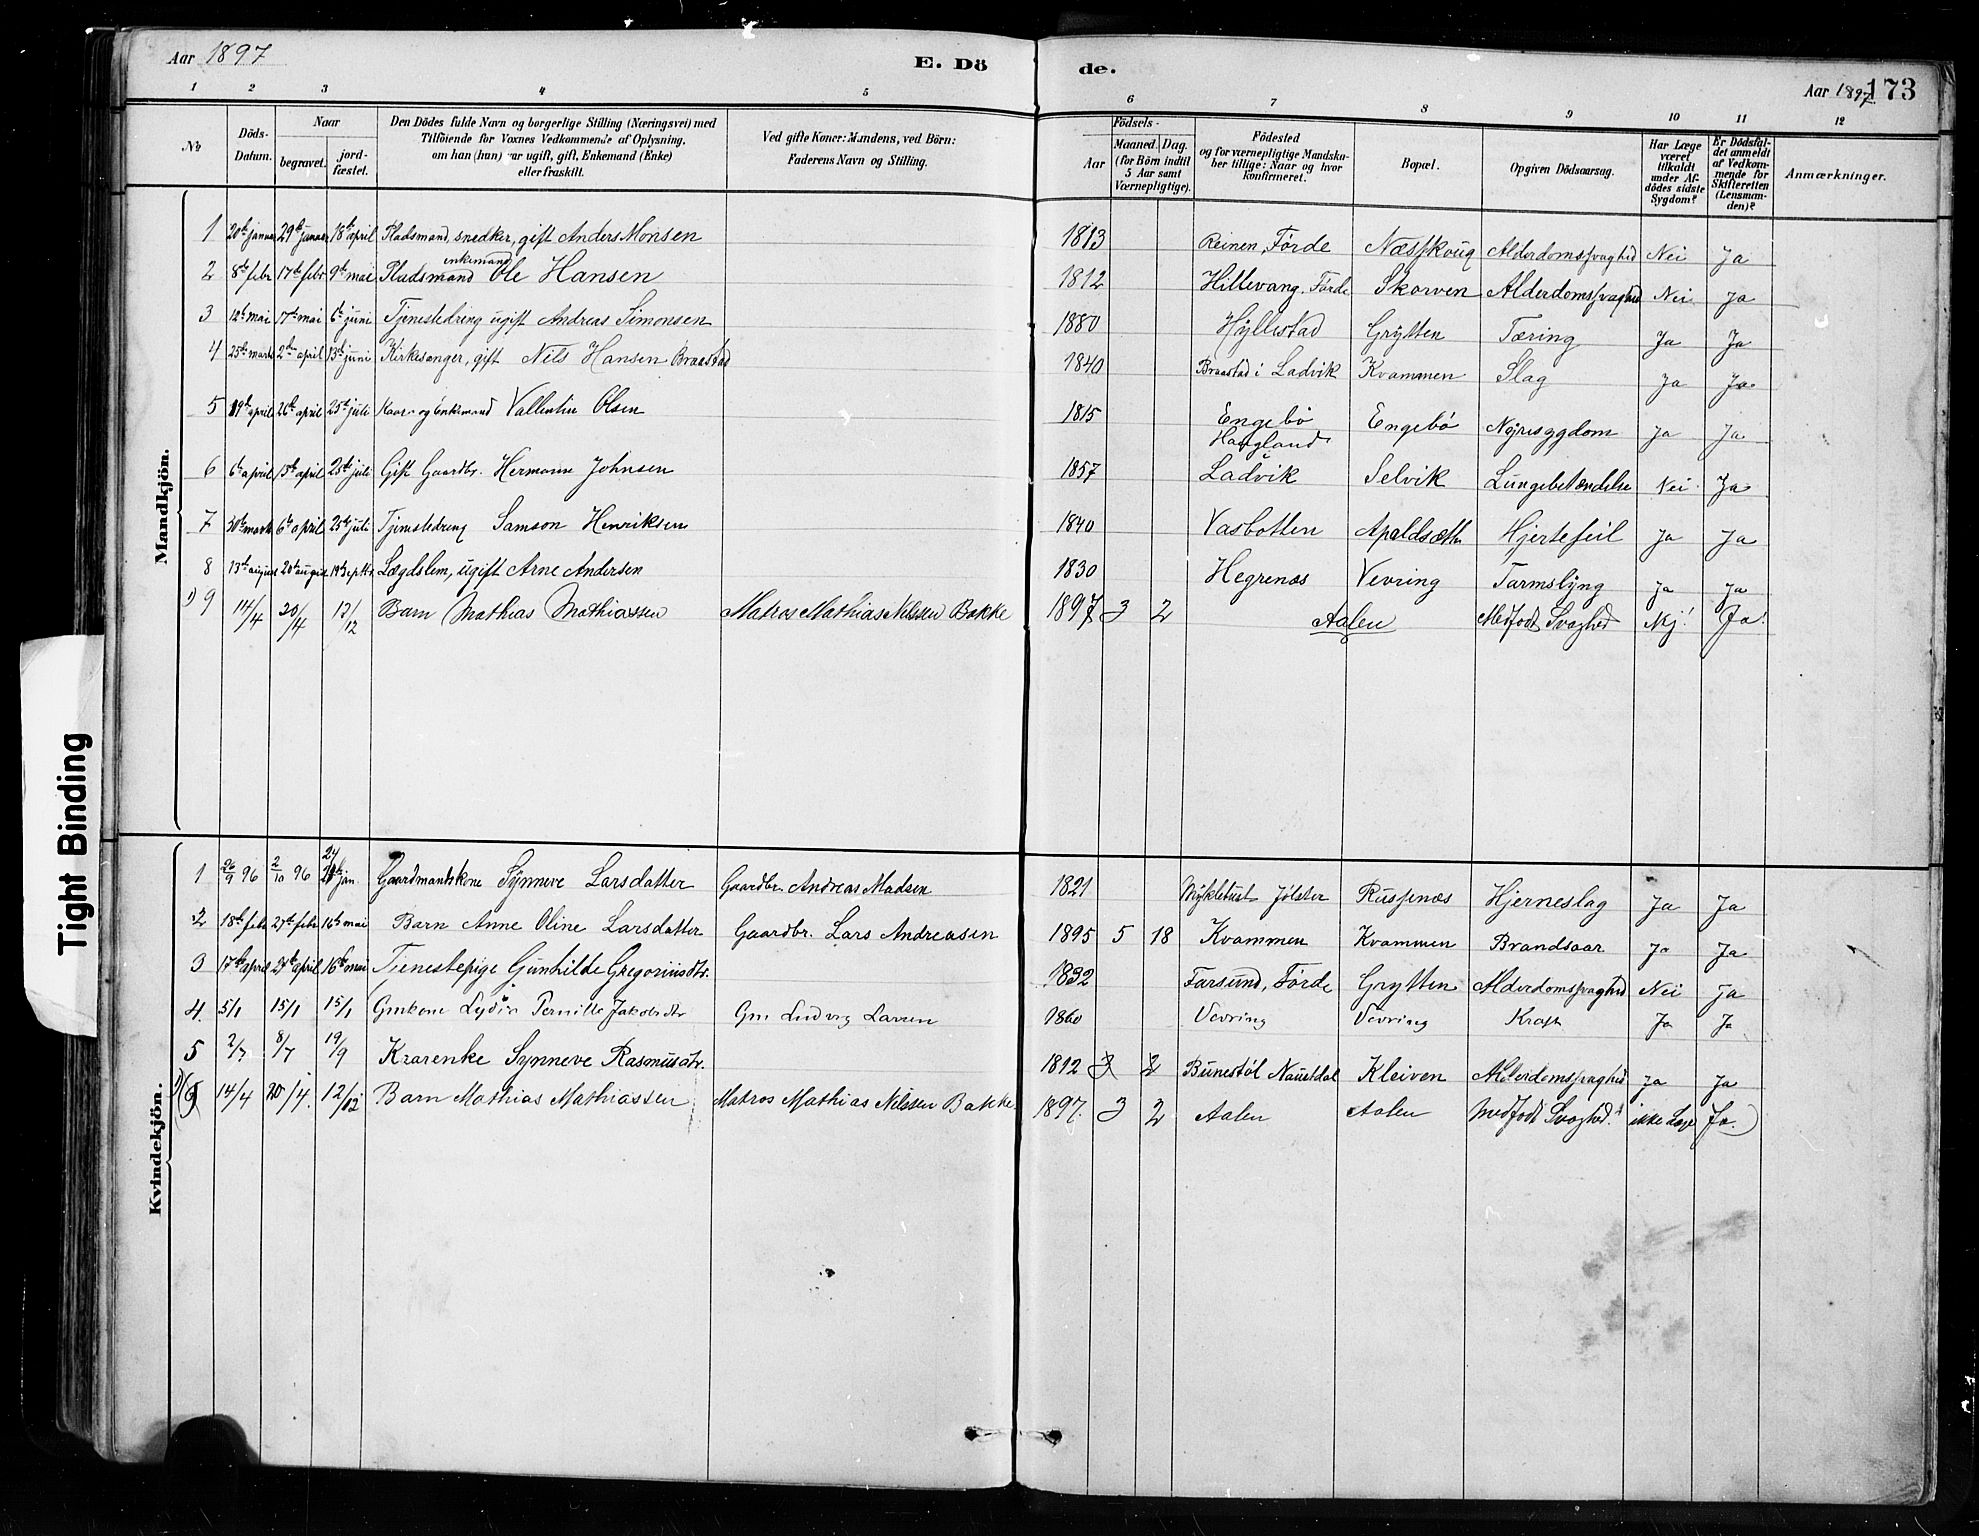 Aar 1897
E. Dö
de.
Aar 1897 173
1 2 3 4 5 6 7 8 9 10 11 12
No
Döds-Datum.
Naar
begravet.
jord-fæstet.
Den Dödes fulde Navn og borgerlige Stilling (Næringsvei) med
Tilföiende for Voxnes Vedkommende af Oplysning,
om han (hun) var ugift, gift, Enkemand (Enke)
eller fraskilt.
Ved gifte Koner: Mandens, ved Börn:
Faderens Navn og Stilling.
Födsels-
Aar
Maaned. Dag.
(for Börn indtil
5 Aar samt
Værnepligtige).
Födested
og for værnepligtige Mandska-
ber tillige: Naar og hvor
konfirmeret.
Bopæl.
Opgiven Dödsaarsag.
Har Læge
været
tilkaldt
under Af-
dödes sidste
Sygdom?
Er Dödsfal-
det anmeldt
af Vedkom-
mende for
Skifteretten
(Lensman-
den)?
Anmærkninger.
Mandkjön.
1 20de januar 29de januar 18de april Pladsmand, snedker, gift Anders Monsen 1813 Reinen, Förde Næsskoug Alderdomssvaghed Nei Ja
enkemand
2 8de febr 17de febr 9de mai Pladsmand Ole Hansen 1812 Hillevang, Förde Skorven Alderdomssvaghed Nei Ja
3 12te mai 17de mai 6te juni Tjenestedreng ugift Andreas Simonsen 1880 Hyllestad Grytten Tæring Ja Ja
4 25de marts 2den april 13de juni Kirkesanger, gift Nils Hansen Braastad 1840 Braastad i Ladvik Kvammen Slag Ja Ja
5 19de april 26de april 25de juli Kaar- og Enkemand Vallentin Olsen 1815 Engebö Engebö Nyresygdom Ja Ja
6 6te april 15de april 25de juli Gift Gaardbr. Hermann Johnsen 1857 Haugland Ladvik Selvik Lungebetændelse Nei Ja
7 30te marts 6te april 25de juli Tjenestedreng Samson Henriksen 1840 Vasbotten Apaldsæth Hjertefeil Ja Ja
8 13de august 20de august 19de septbr Lægdslem, ugift Arne Andersen 1830 Hegrenæs Vevring Tarmslyng Ja Ja
1) 9 14/4 20/4 12/12 Barn Mathias Mathiassen Matros Mathias Nilssen Bakke 1897 3 2 Aalen Medfödt Svaghed Nej! Ja!
Kvindekjön.
1 26/9 96 2/10 96 24 jan. Gaardmandskone Synneve Larsdatter Gaardbr. Andreas Madsen 1821 Myklebust Jölster Russenæs Hjerneslag Ja Ja
2 18de febr 27de febr 16de mai Barn Anne Oline Larsdatter Gaardbr. Lars Andreasen 1895 5 18 Kvammen Kvammen Brandsaar Ja Ja
3 17de april 27de april 16de mai Tjenestepige Gunhilde Gregoriusdtr. 1832 Farsund, Förde Grytten Alderdomssvaghed Nei Ja
4. 5/1 15/1 15/1 Gmkone Lydia Pernille Jakobsdtr Gm Ludvig Larsen 1860 Vevring Vevring Kræft Ja Ja
5 2/7 8/7 19/9 Kaarenke Synneve Rasmusdtr. 1812 3 2 Bunestöl Naustdal Kleiven Alderdomssvaghed Ja Ja
1) (6) 14/4 20/4. 12/12 Barn Mathias Mathiassen Matros Mathias Nilssen Bakke. 1897. 3 2 Aalen Aalen Medfödt Svaghed. ikke Læge Ja.)
Tight Binding